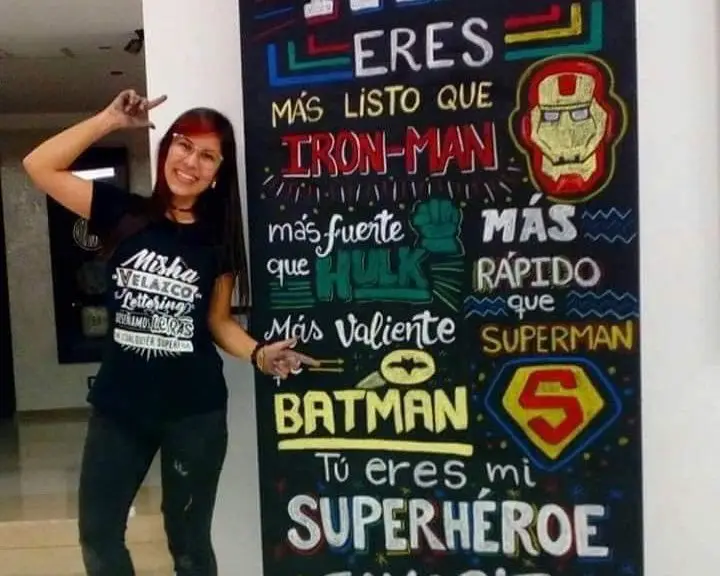 ERES
MÁS LISTO QUE
IRON-MAN
más fuerte
que HULK
MÁS
RÁPIDO
que
SUPERMAN
Más Valiente
BATMAN
S
Tú eres mi
SUPERHÉROE
Misha
VELAZCO
Lettering
DISEÑAMOS LETRAS